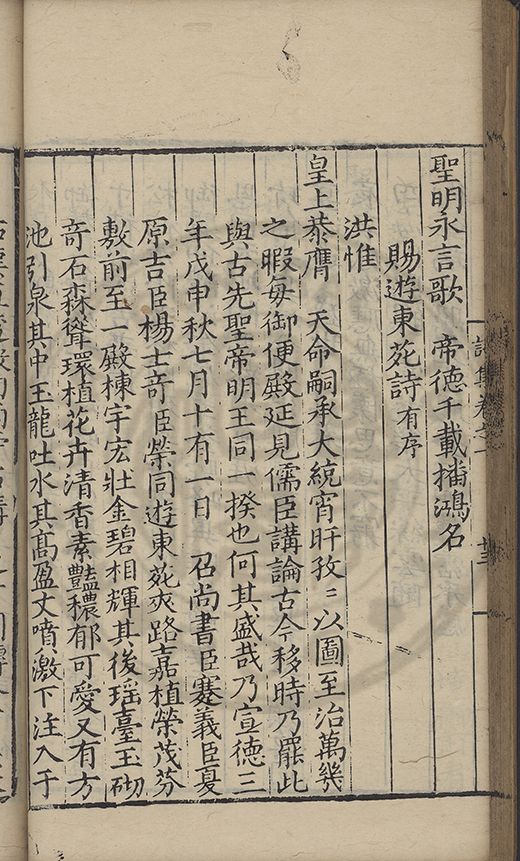 聖明永言歌　帝德千載播鴻名
賜遊東苑詩有序
洪惟
皇上恭膺　天命嗣承大統宵旰孜〻以圖至治萬幾
之暇每御便殿延見儒臣講論古今移時乃罷此
與古先聖帝明王同一揆也何其盛哉乃宣德三
年戊申秋七月十有一日　召尚書臣蹇義臣夏
原吉臣楊士竒臣榮同遊東苑夾路嘉植榮茂芬
敷前至一殿棟宇宏壯金碧相輝其後瑤臺玉砌
竒石森聳環植花卉清香素豔穠郁可愛又有方
池引泉其中玉龍吐水其髙盈丈噴激下注入于